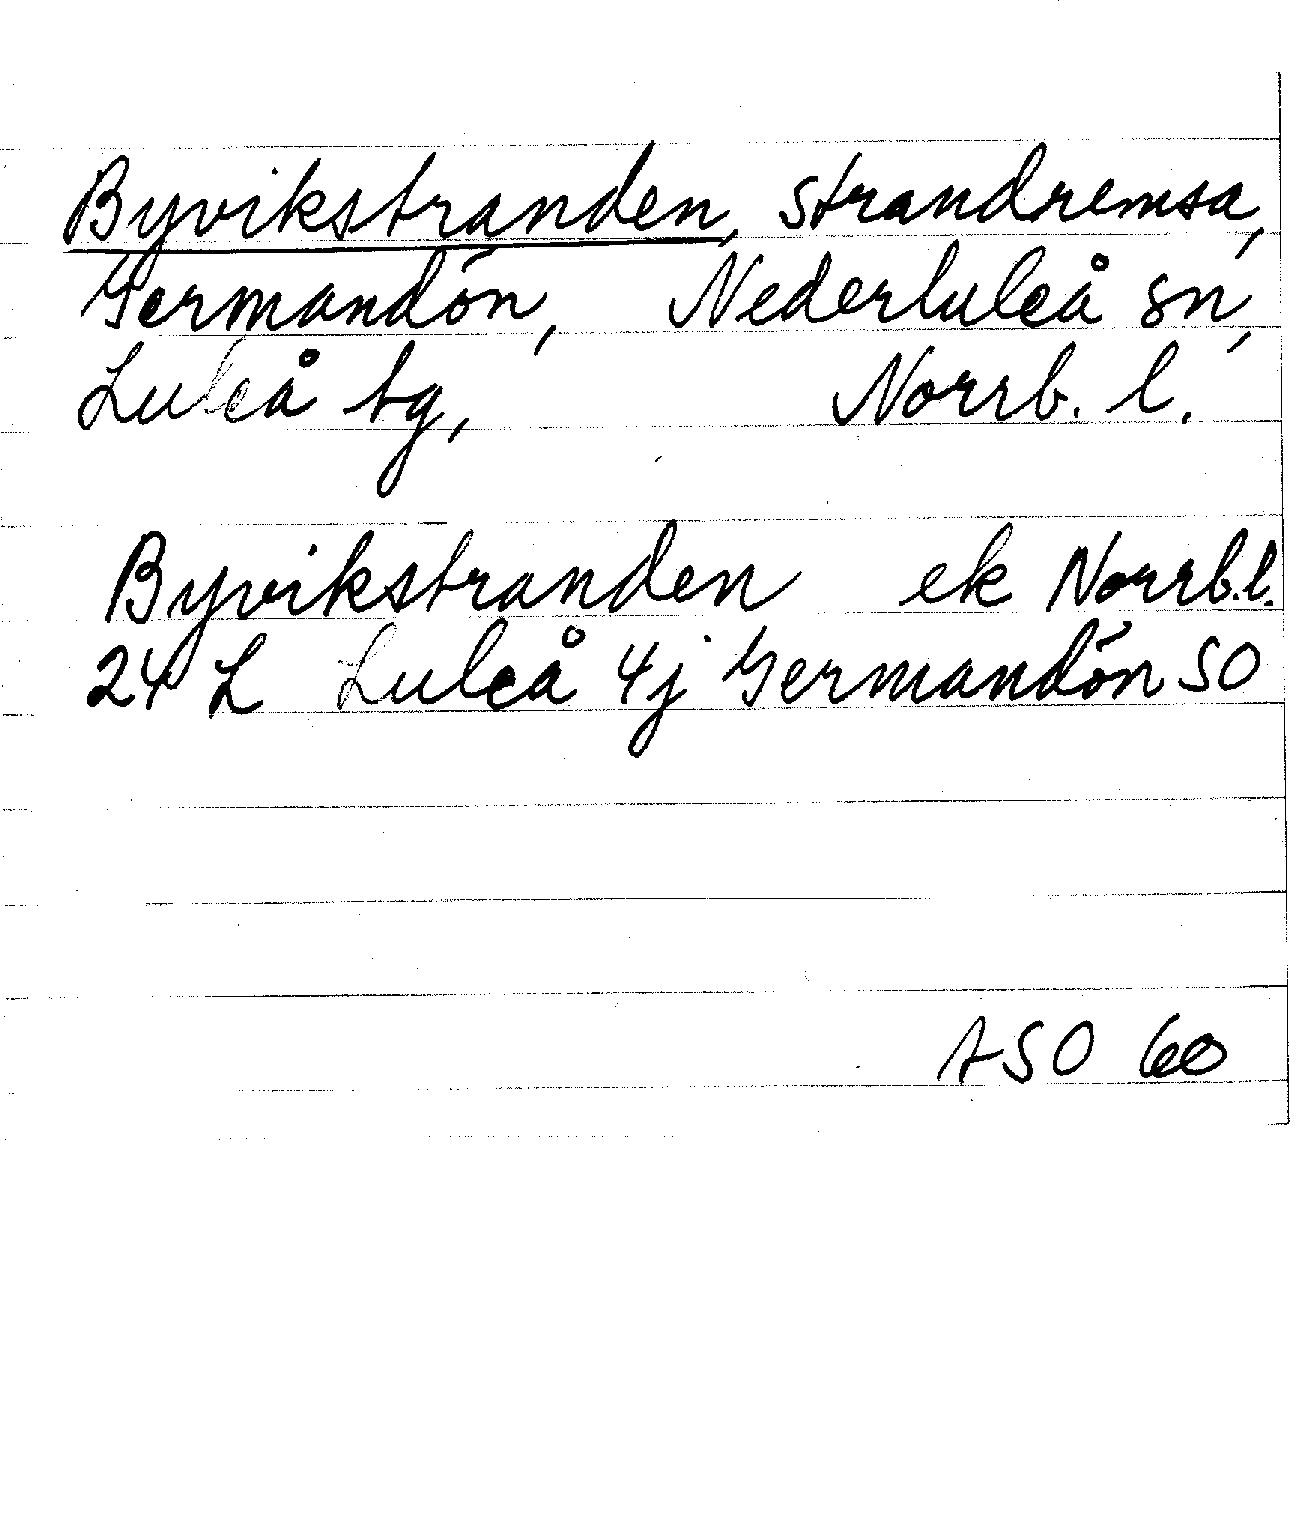 Byvikstranden, strandremsa,
Germandön, Nederluleå sn,
Luleå tg, Norrb. l.
Byvikstranden ek Norrb.l.
24 L Luleå 4j Germandön SO
ASO 60